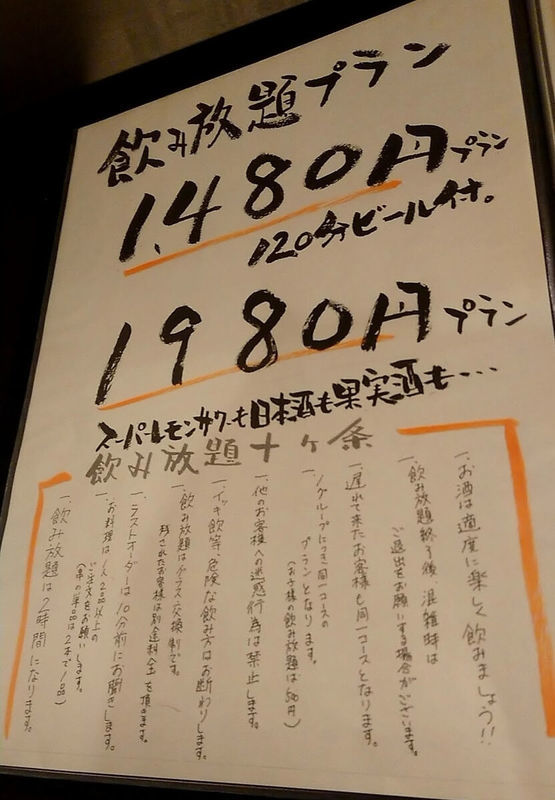 飲み放題プラン
1,480円プラン
120分ビール付。
1980円プラン
スーパーレモンサワーも日本酒も果実酒も・・・
飲み放題十ヶ条
一、お酒は適度に楽しく飲みましょう!!
一、飲み放題終了後、混雑時は
ご退出をお願いする場合がございます。
一、遅れて来たお客様も同一コースとなります。
一、1グループにつき同一コースの
プランとなります。
(お子様の飲み放題は500円)
一、他のお客様への迷惑行為は禁止します。
一、イッキ飲等危険な飲み方はお断わりします。
一、飲み放題はグラス交換制です。
残されたお客様は別途料金を頂きます。
一、ラストオーダーは10分前にお聞きします。
一、お料理は1人2品以上の
ご注文をお願いします。
(串の単品は2本で1品)
一、飲み放題は2時間になります。